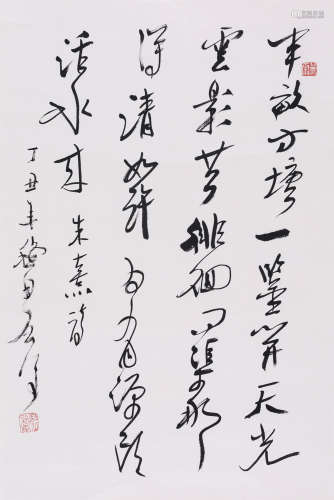 半畝方塘一鑒開天光
雲影共徘徊問渠那
得清如許為有源頭
活水來 朱熹詩
丁丑年